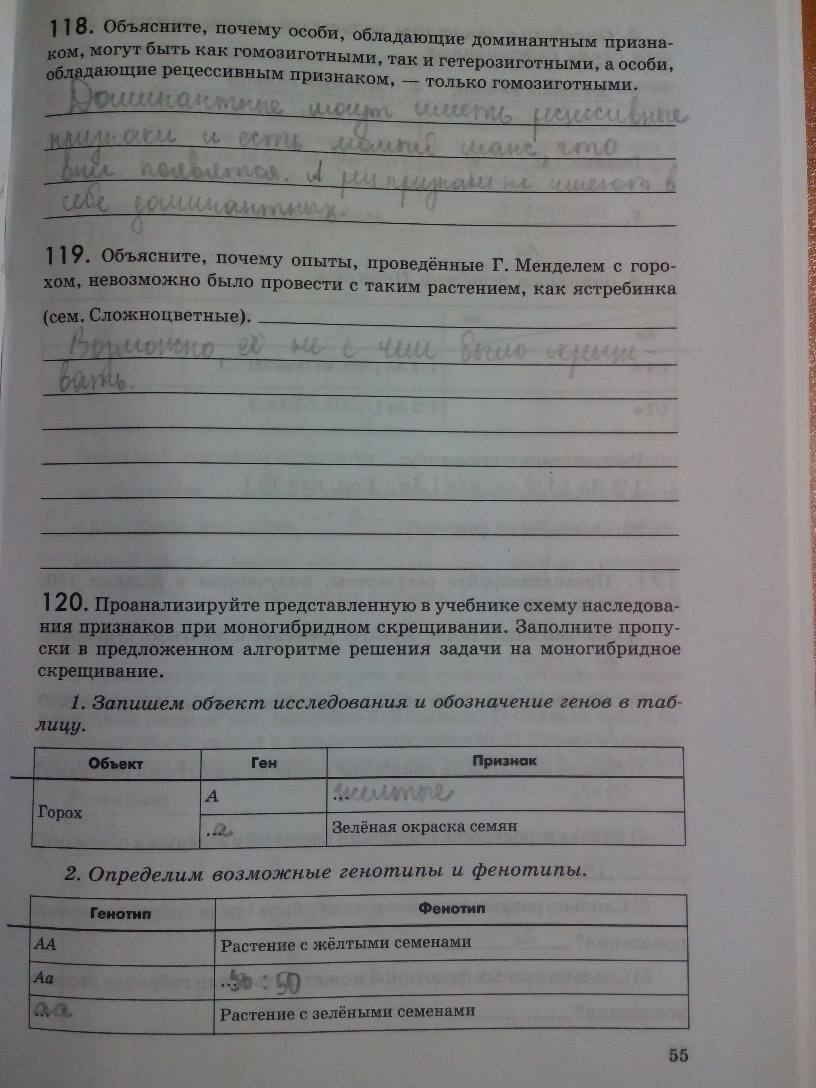 118. Объясните, почему особи, обладающие доминантным призна-
ком, могут быть как гомозиготными, так и гетерозиготными, а особи,
обладающие рецессивным признаком, — только гомозиготными.
Доминантные могут иметь рецессивные
признаки и есть малый шанс, что
они появятся. А рец признаки не имеют в
себе доминантных.
119. Объясните, почему опыты, проведённые Г. Менделем с горо-
хом, невозможно было провести с таким растением, как ястребинка
(сем. Сложноцветные).
Возможно её не с чем было скрещи-
вать.
120. Проанализируйте представленную в учебнике схему наследова-
ния признаков при моногибридном скрещивании. Заполните пропу-
ски в предложенном алгоритме решения задачи на моногибридное
скрещивание.
1. Запишем объект исследования и обозначение генов в таб-
лицу.
Объект Ген Признак
Горох A ... желтые
... а Зелёная окраска семян
2. Определим возможные генотипы и фенотипы.
Генотип Фенотип
AA Растение с жёлтыми семенами
Aa ... 50 : 50
... аа Растение с зелёными семенами
55